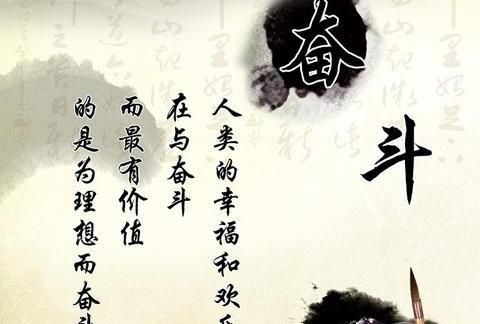 奋
斗
人类的幸福和欢乐
在与奋斗
而最有价值
的是为理想而奋斗